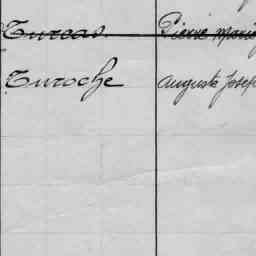 Tureas Pierre Marie
Turoche Auguste Josep